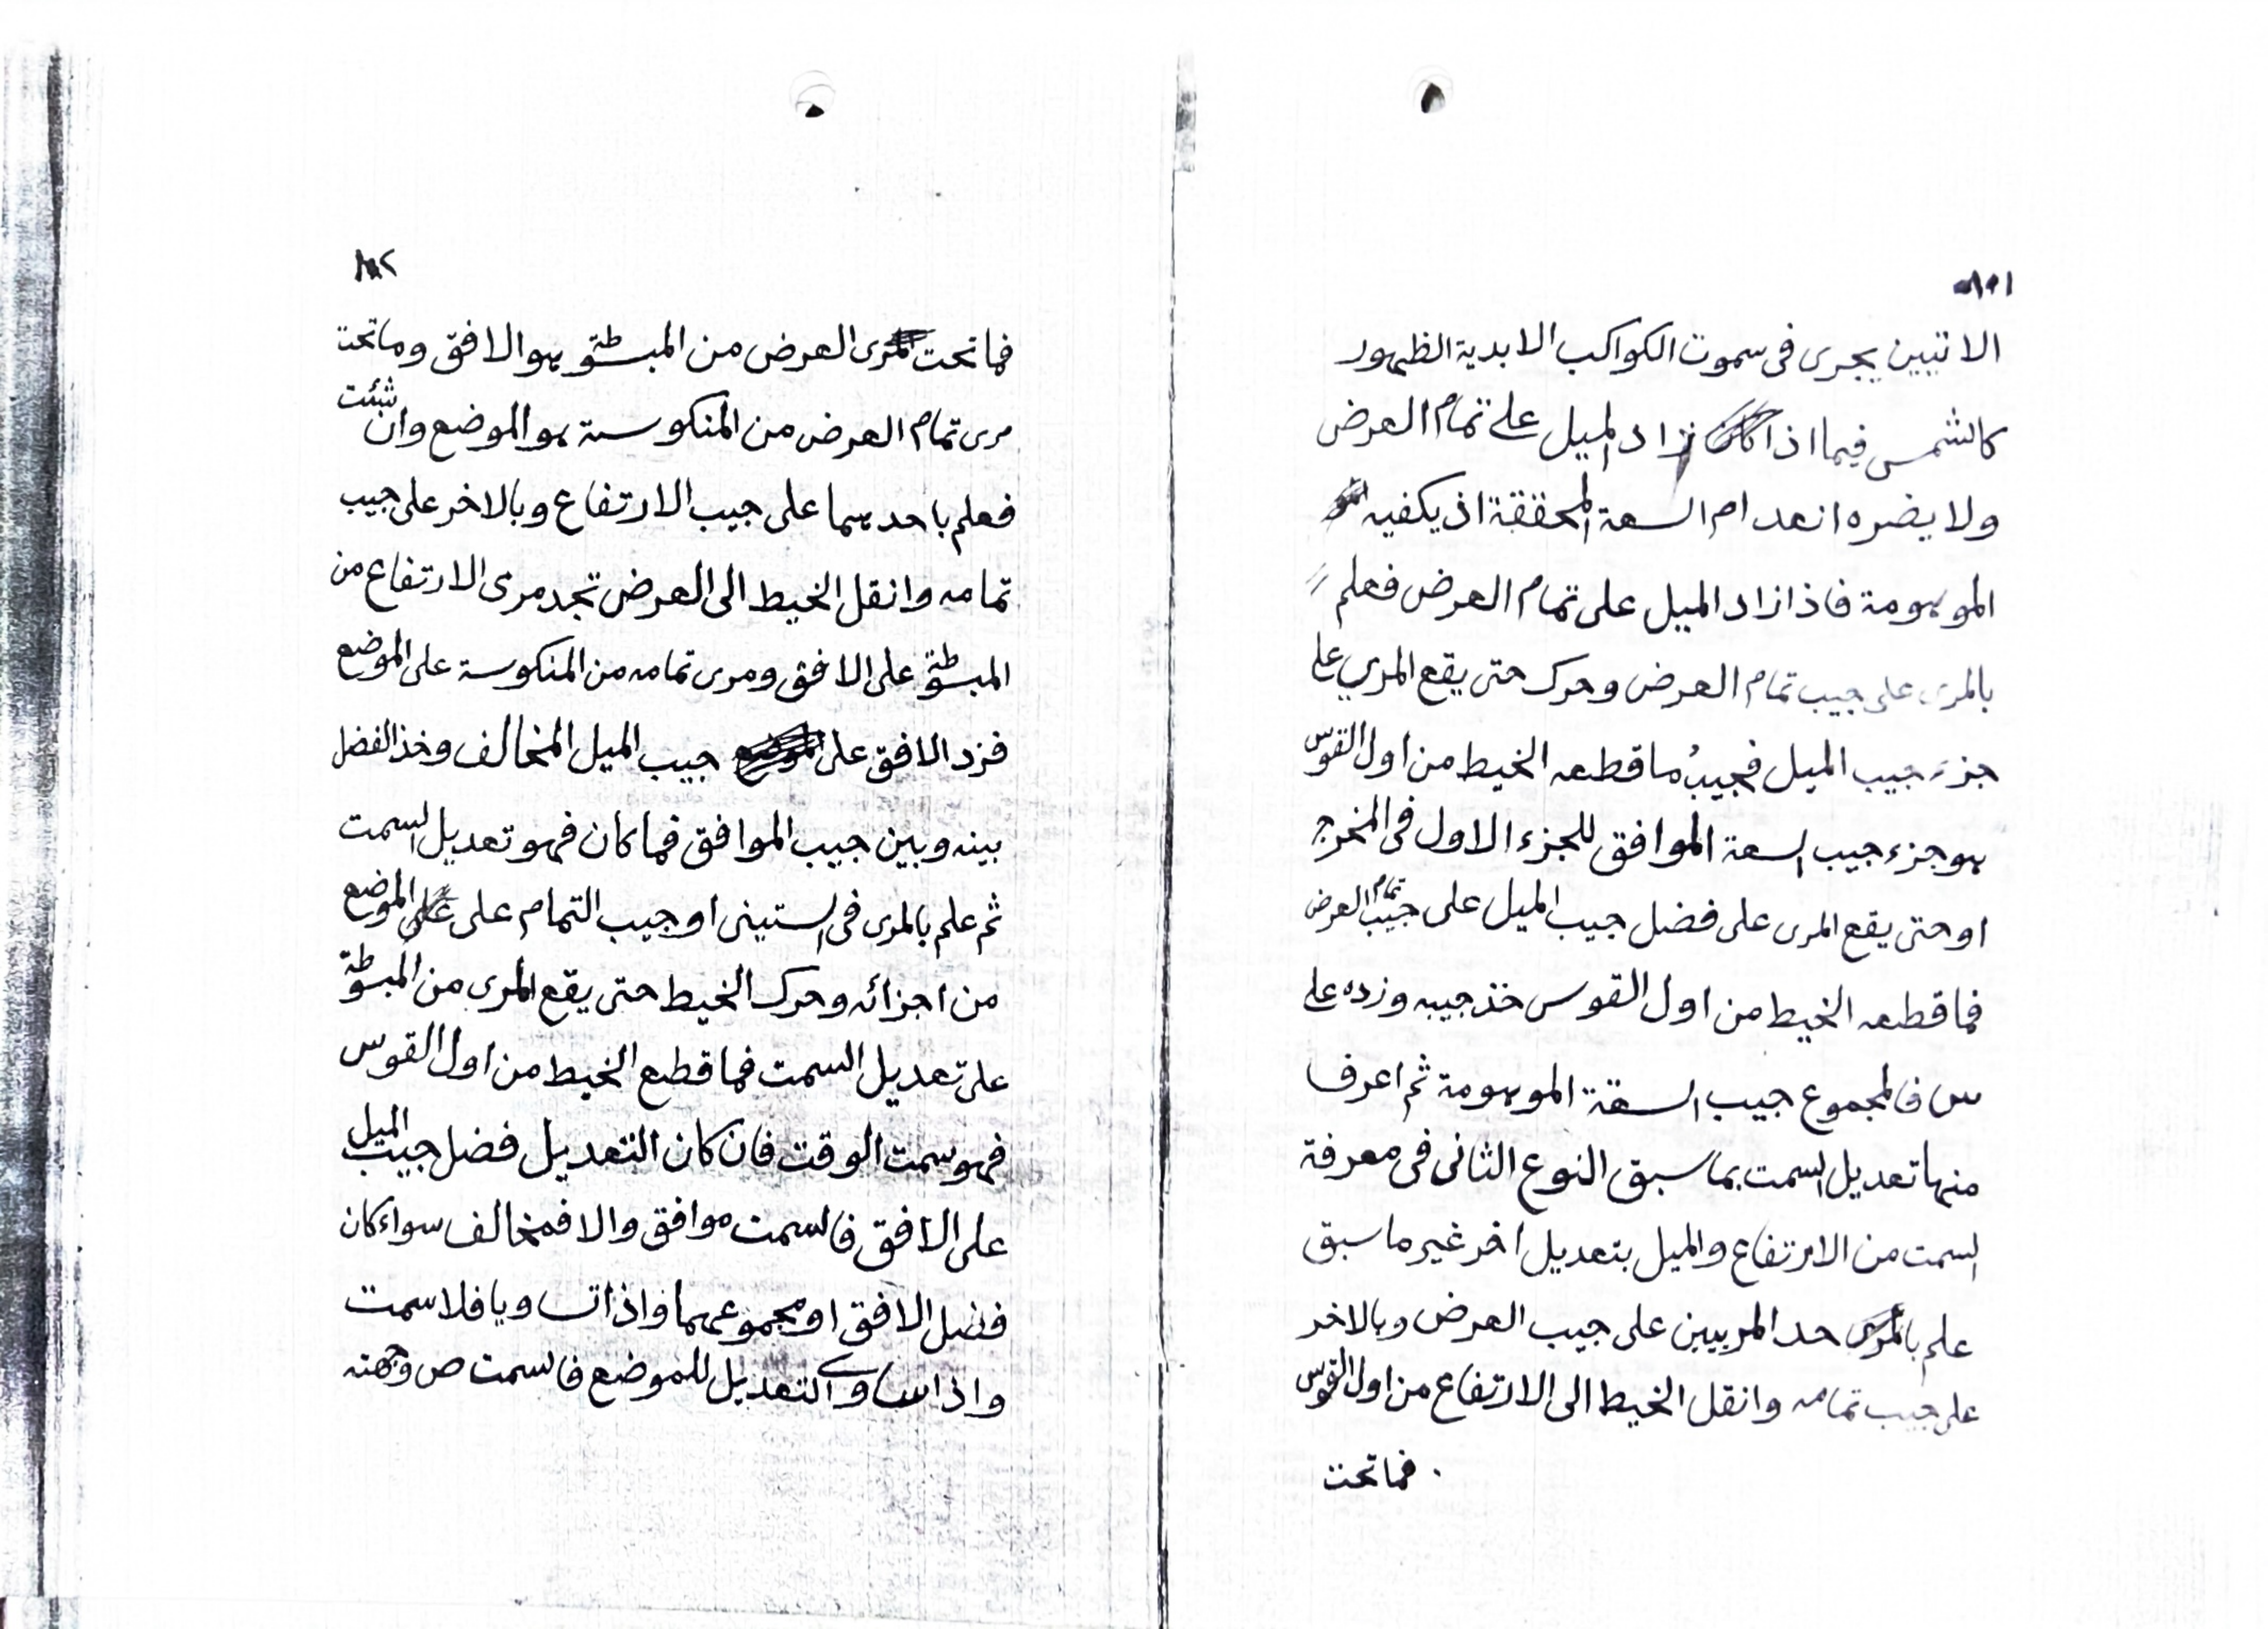 الاتيين يجرى فى سموت الكواكب الابدية الظهور
كالشمس فيما اذا زاد الميل على تمام العرض
ولا يضره انعدام السعة المحققة اذ يكفيه
الموهومة فاذا زاد الميل على تمام العرض فعلم
بالمرى على جيب تمام العرض وحرك حتى يقع المري على
جزء جيب الميل فجيبُ ما قطعه الخيط من اول القوس
هو جزء جيب السعة الموافق للجزء الاول فى المخرج
او حتى يقع المرى على فضل جيب الميل على جيب تمام العرض
فما قطعه الخيط من اول القوس خذ جيبه وزده على
س فالمجموع جيب السقة الموهومة ثم اعرف
منها تعديل السمت بما سبق النوع الثانى فى معرفة
السمت من الارتفاع والميل بتعديل اخر غير ما سبق
علم باحد المريين على جيب العرض وبالاخر
على جيب تمامه وانقل الخيط الى الارتفاع من اول القوس
فما تحت
١٨٢
فما تحت مرى العرض من المبسوطة هو الافق وما تحت
مرى تمام العرض من المنكوسة هو الموضع وان شئت
فعلم باحدهما على جيب الارتفاع وبالاخر على جيب
تمامه وانقل الخيط الى العرض تجد مرى الارتفاع من
المبسوطة على الافق ومرى تمامه من المنكوسة على الموضع
فزد الافق على جيب الميل المخالف وخذ الفضل
بينه وبين جيب الموافق فما كان فهو تعديل السمت
ثم علم بالمرى فى الستينى او جيب التمام على الموضع
من اجزائه وحرك الخيط حتى يقع المرى من المبسوطة
على تعديل السمت فما قطع الخيط من اول القوس
فهو سمت الوقت فان كان التعديل فضل جيب الميل
على الافق فالسمت موافق والا فمخالف سواء كان
فضل الافق او مجموعهما واذا تساويا فلا سمت
واذا ساوى التعديل للموضع فالسمت ص وجهته